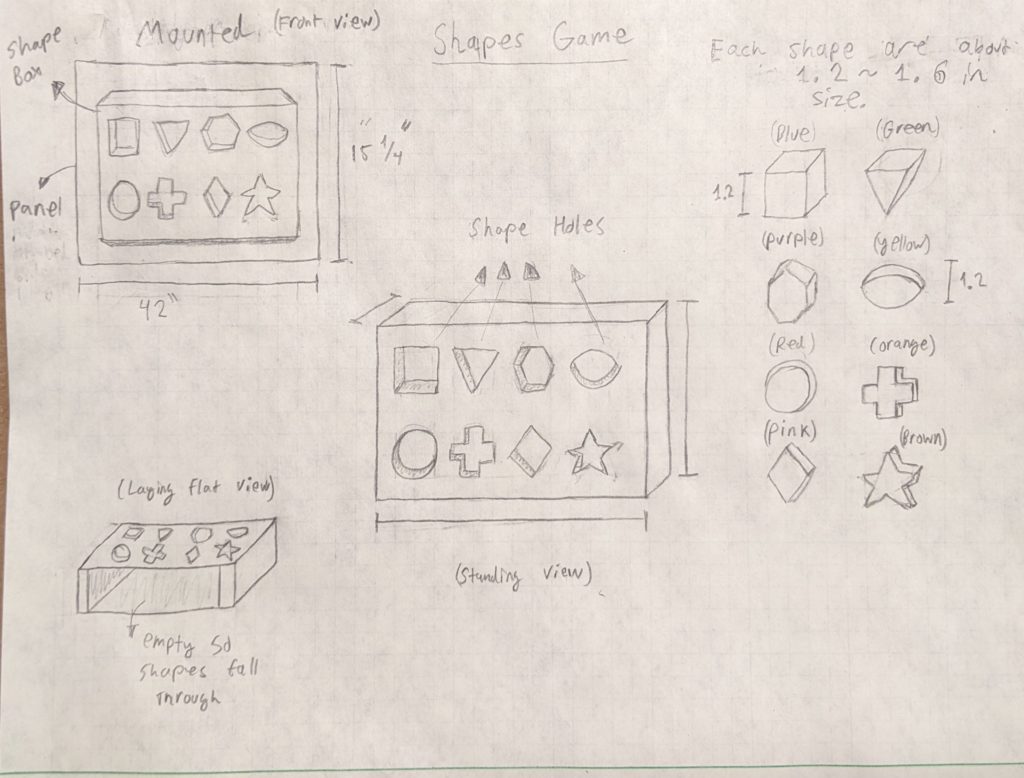 Shapes Game
Mounted (Front view)
Shape
Box
Panel
15 1/4"
42"
Each shape are about
1.2 ~ 1.6 in
size.
(Blue)
(Green)
1.2
(Purple)
(yellow)
1.2
(Red)
(orange)
(Pink)
(Brown)
Shape Holes
(Standing view)
(Laying flat view)
empty so
shapes fall
through